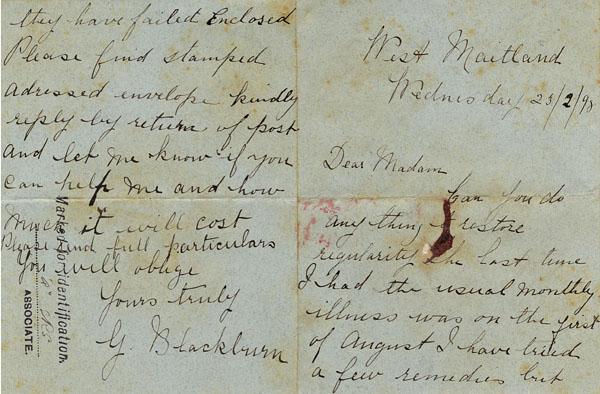 West Maitland
Wednesday 23/2/98
Dear Madam
Can you do
any thing restore
regularity the last time
I had the usual monthly
illness was on the first
of August I have tried
a few remedies but
they have failed Enclosed
Please find stamped
adressed envelope kindly
reply by return of post
and let me know if you
can help me and how
much it will cost
Please send full particulars
You will oblige
Yours truly
G. Blackburn
Marked for identification
ASSOCIATE.